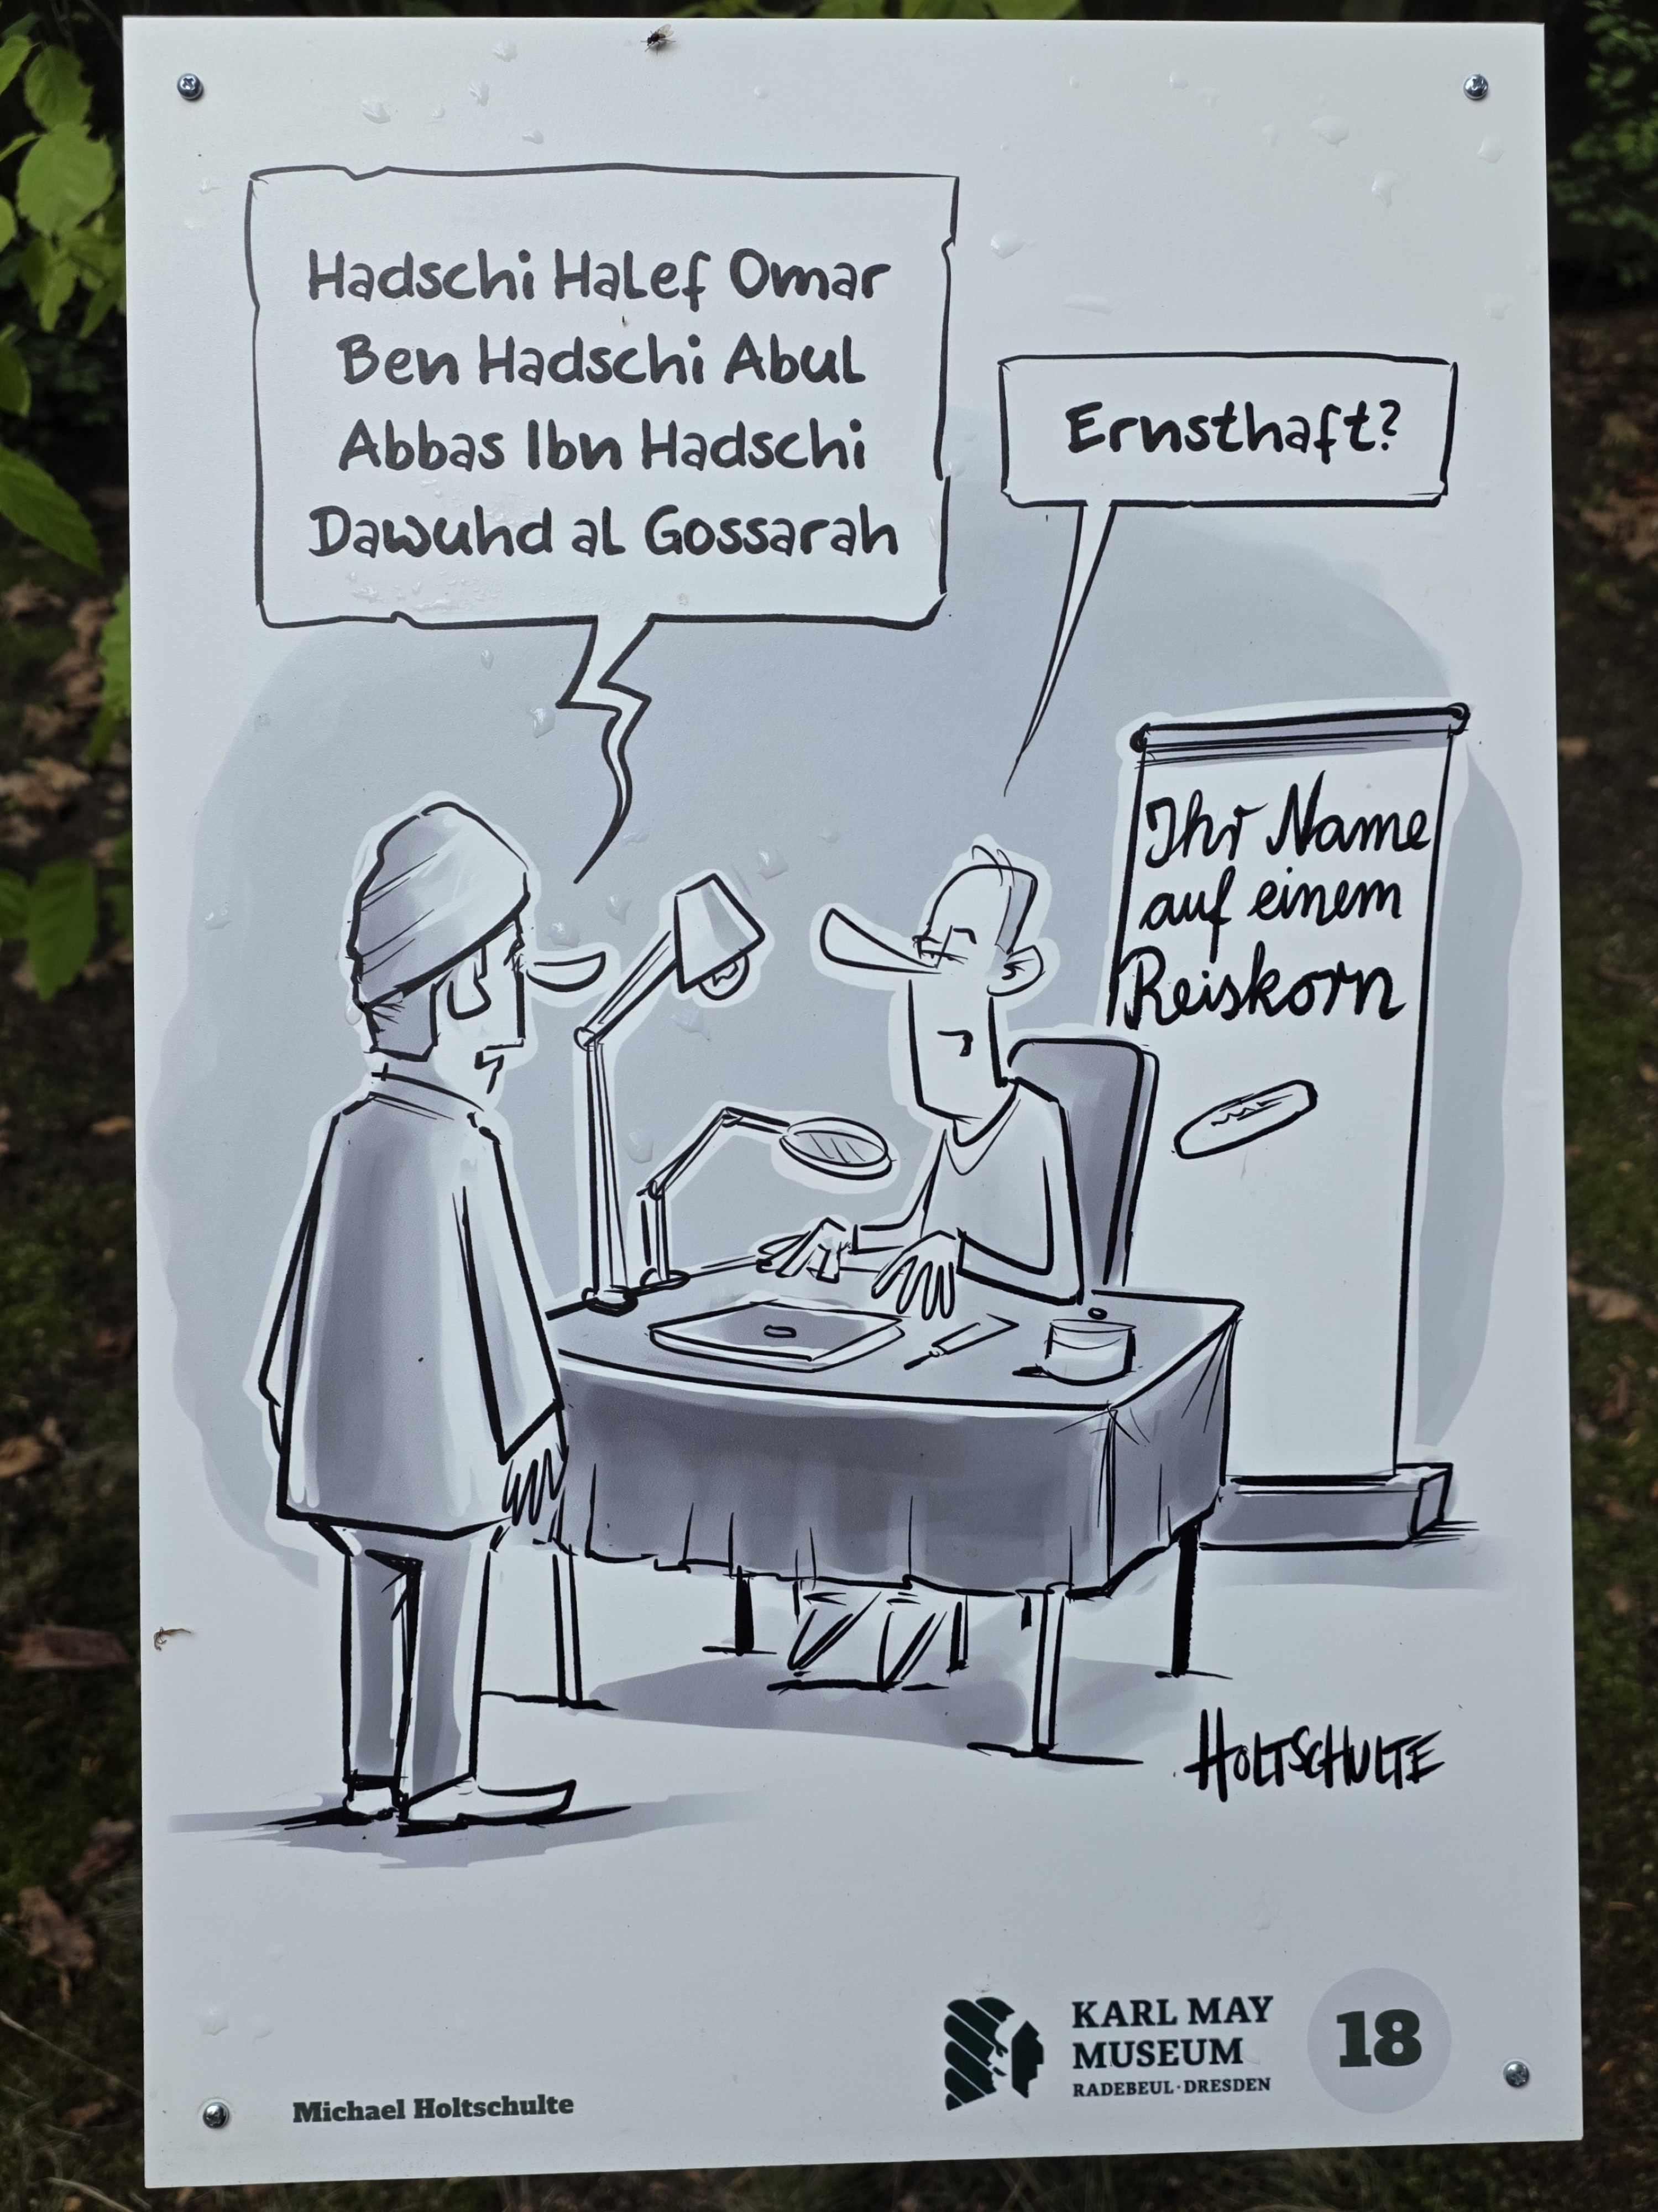 Hadschi Halef Omar
Ben Hadschi Abul
Abbas Ibn Hadschi
Dawuhd al Gossarah
Ernsthaft?
Ihr Name
auf einem
Reiskorn
HOLTSCHULTE
Michael Holtschulte
KARL MAY
MUSEUM
RADEBEUL·DRESDEN
18